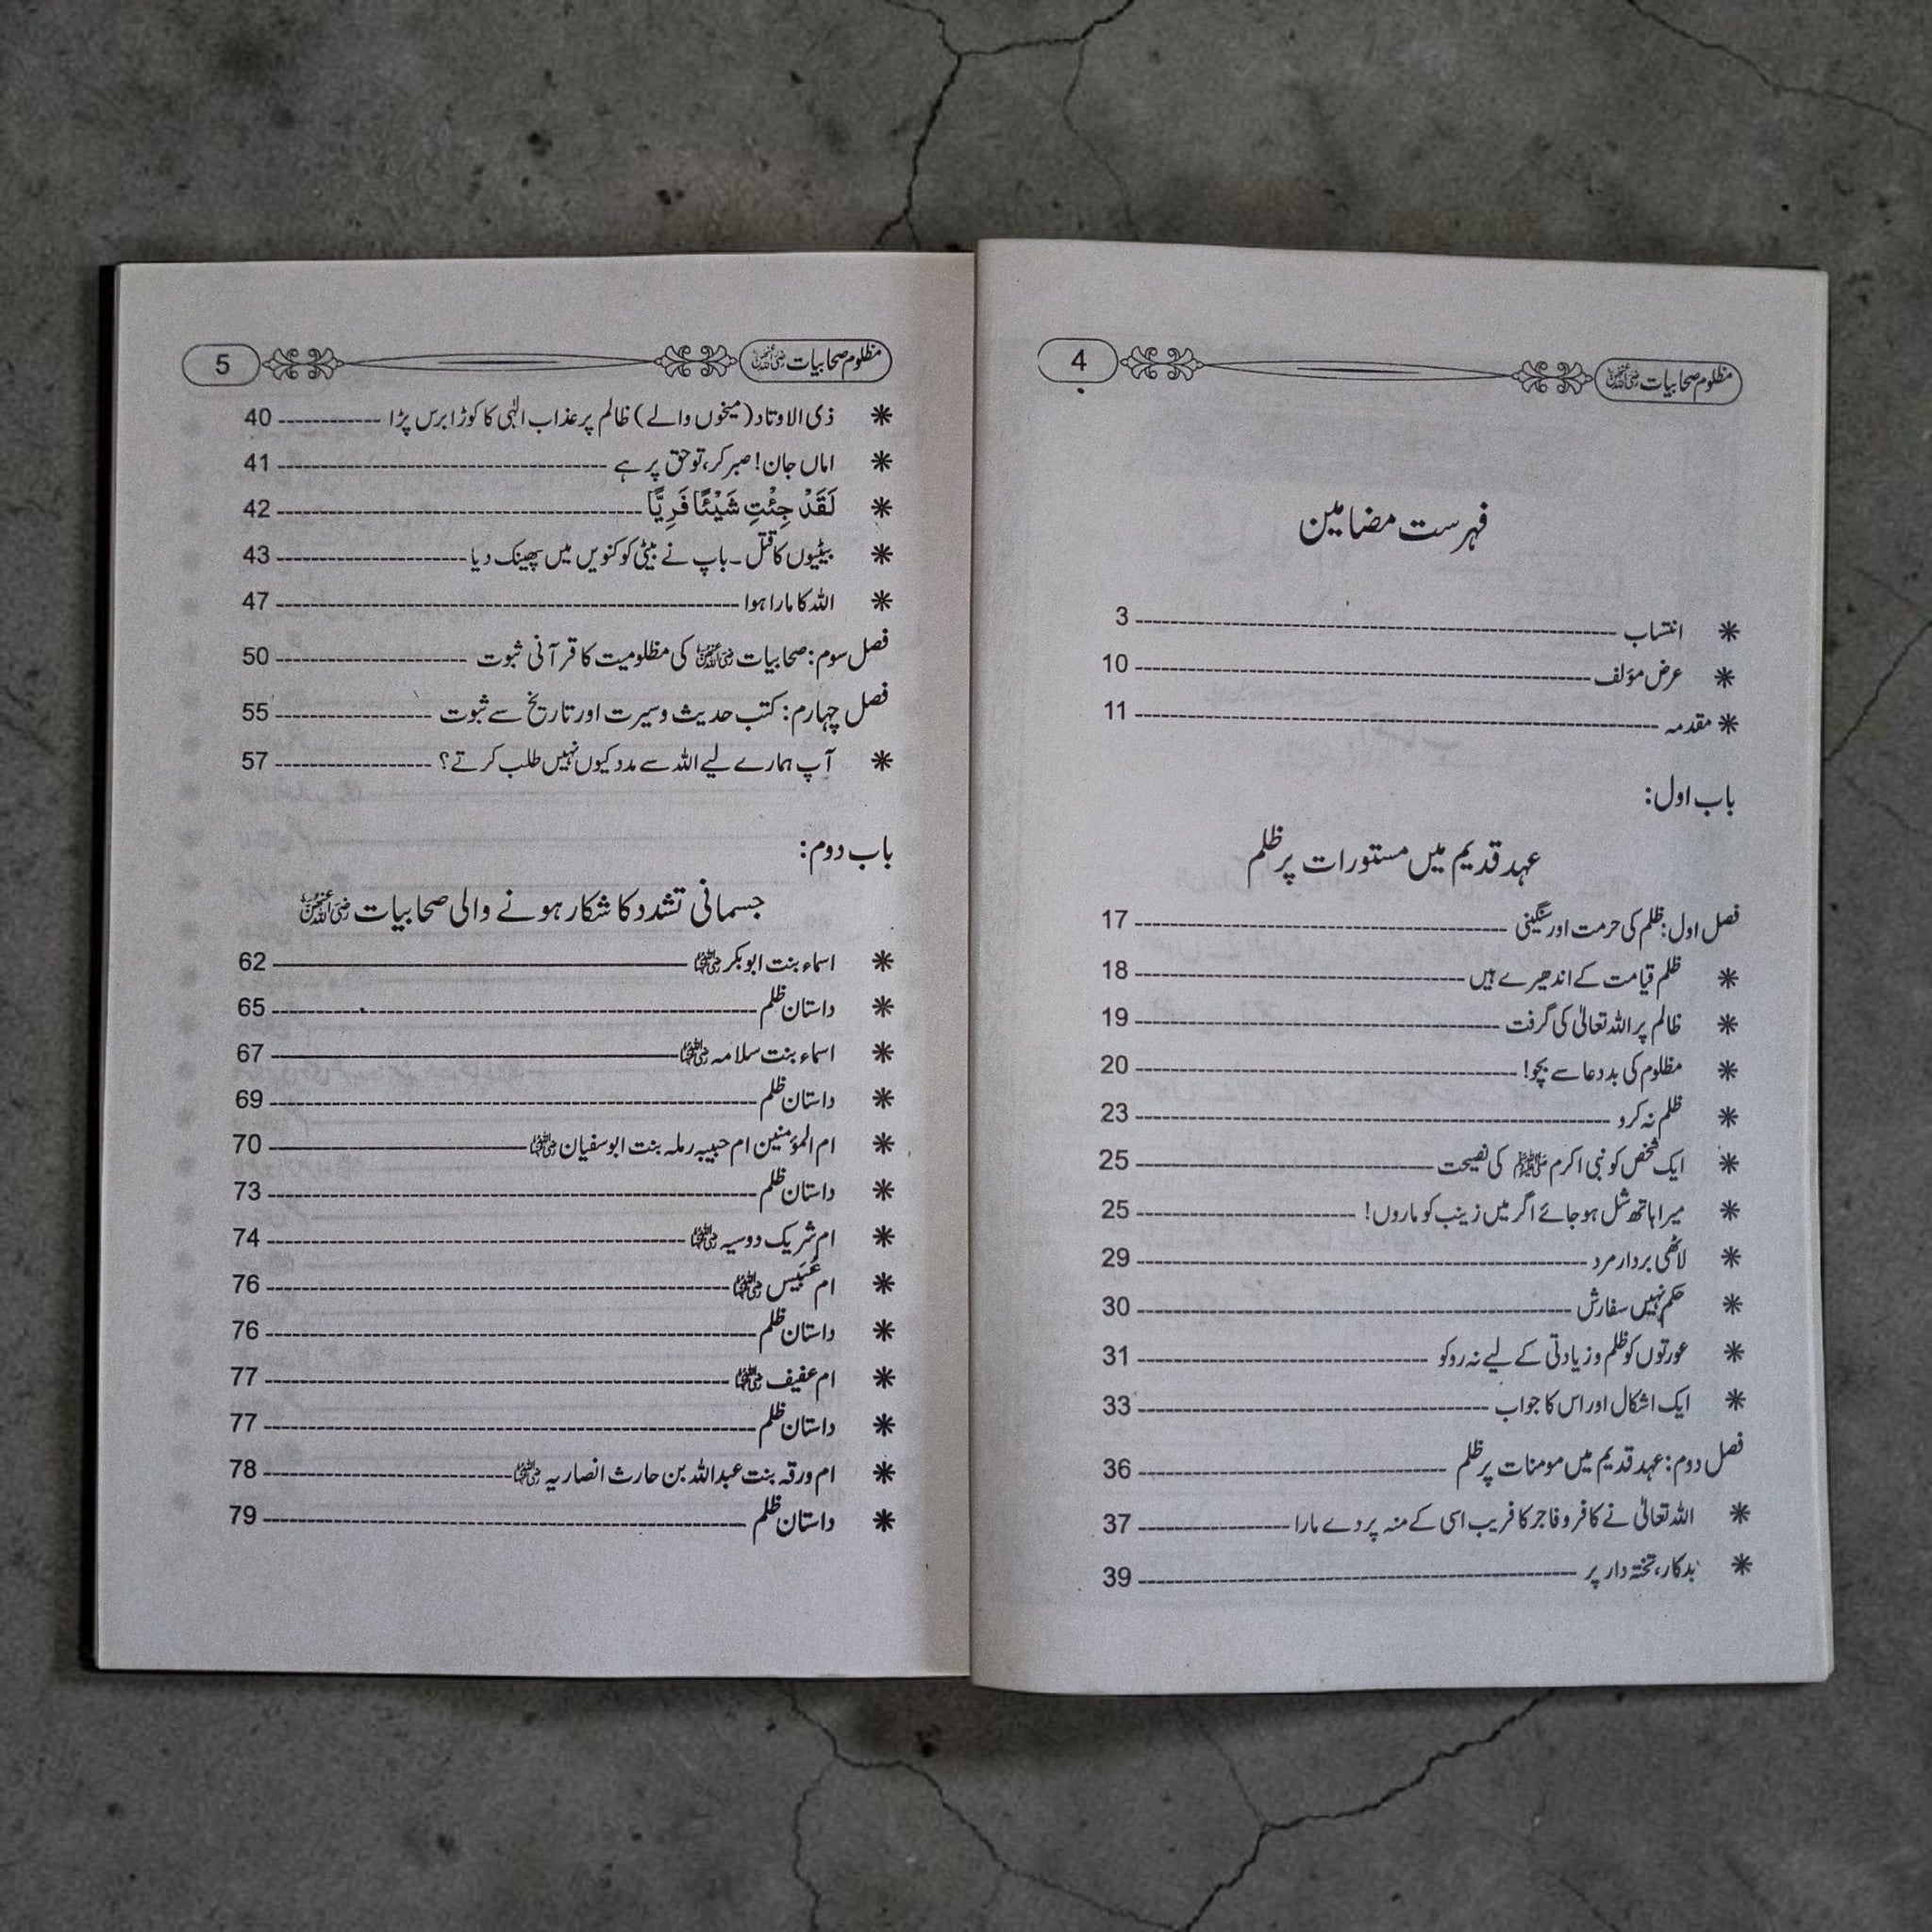 مظلوم صحابیات رضی اللہ عنہن 4
فہرست مضامین
* انتساب 3
* عرض مؤلف 10
* مقدمہ 11
باب اول:
عہد قدیم میں مستورات پر ظلم
فصل اول: ظلم کی حرمت اور سنگینی 17
* ظلم قیامت کے اندھیرے ہیں 18
* ظالم پر اللہ تعالیٰ کی گرفت 19
* مظلوم کی بددعا سے بچو! 20
* ظلم نہ کرو 23
* ایک شخص کو نبی اکرم ﷺ کی نصیحت 25
* میرا ہاتھ شل ہو جائے اگر میں زینب کو ماروں! 25
* لاٹھی بردار مرد 29
* حکم نہیں سفارش 30
* عورتوں کو ظلم و زیادتی کے لیے نہ روکو 31
* ایک اشکال اور اس کا جواب 33
فصل دوم: عہد قدیم میں مومنات پر ظلم 36
* اللہ تعالیٰ نے کافر و فاجر کا فریب اسی کے منہ پر دے مارا 37
* بدکار، تختہ دار پر 39
مظلوم صحابیات رضی اللہ عنہن 5
* ذی الاوتاد (میخوں والے) ظالم پر عذاب الٰہی کا کوڑا برس پڑا 40
* اماں جان! صبر کر، تو حق پر ہے 41
* لَقَدْ جِئْتِ شَيْئًا فَرِيًّا 42
* بیٹیوں کا قتل ۔ باپ نے بیٹی کو کنویں میں پھینک دیا 43
* اللہ کا مارا ہوا 47
فصل سوم: صحابیات رضی اللہ عنہن کی مظلومیت کا قرآنی ثبوت 50
فصل چہارم: کتب حدیث و سیرت اور تاریخ سے ثبوت 55
* آپ ہمارے لیے اللہ سے مدد کیوں نہیں طلب کرتے؟ 57
باب دوم:
جسمانی تشدد کا شکار ہونے والی صحابیات رضی اللہ عنہن
* اسماء بنت ابوبکر رضی اللہ عنہا 62
* داستان ظلم 65
* اسماء بنت سلامہ رضی اللہ عنہا 67
* داستان ظلم 69
* ام المؤمنین ام حبیبہ رملہ بنت ابوسفیان رضی اللہ عنہا 70
* داستان ظلم 73
* ام شریک دوسیہ رضی اللہ عنہا 74
* ام عُبَیس رضی اللہ عنہا 76
* داستان ظلم 76
* ام عفیف رضی اللہ عنہا 77
* داستان ظلم 77
* ام ورقہ بنت عبداللہ بن حارث انصاریہ رضی اللہ عنہا 78
* داستان ظلم 79